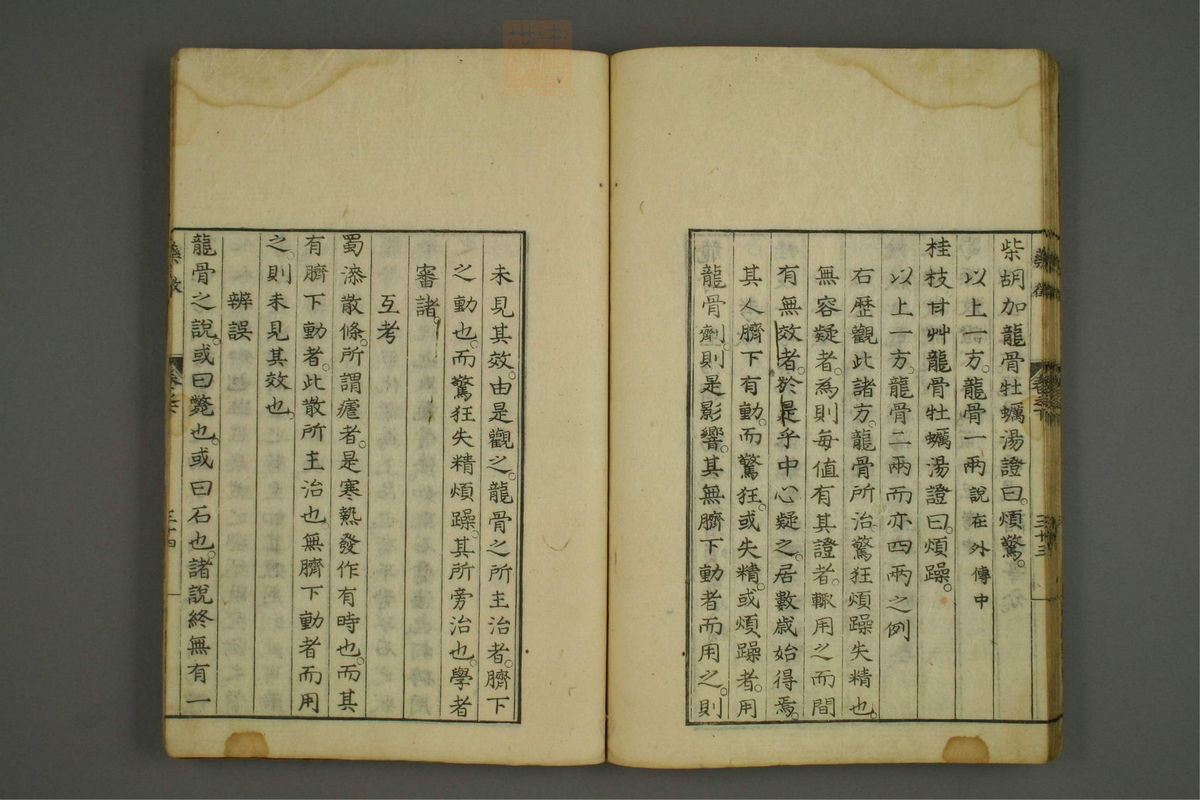 柴胡加龍骨牡蠣湯證曰。煩驚。
以上一方。龍骨一兩說在外傳中
桂枝甘艸龍骨牡蠣湯證曰。煩躁。
以上一方。龍骨二兩而亦四兩之例
右歷觀此諸方。龍骨所治驚狂煩躁失精也。
無容疑者。爲則每值有其證者。輙用之而間
有無效者。於是乎中心疑之。居數歲始得焉。
其人臍下有動。而驚狂。或失精。或煩躁者。用
龍骨劑。則是影響。其無臍下動者而用之。則
未見其效。由是觀之。龍骨之所主治者。臍下
之動也。而驚狂失精煩躁。其所旁治也。學者
審諸。
互考
蜀漆散條。所謂瘧者。是寒熱發作有時也。而其
有臍下動者。此散所主治也。無臍下動者而用
之。則未見其效也。
辨誤
龍骨之說。或曰斃也。或曰石也。諸說終無有一
三十四
三十三